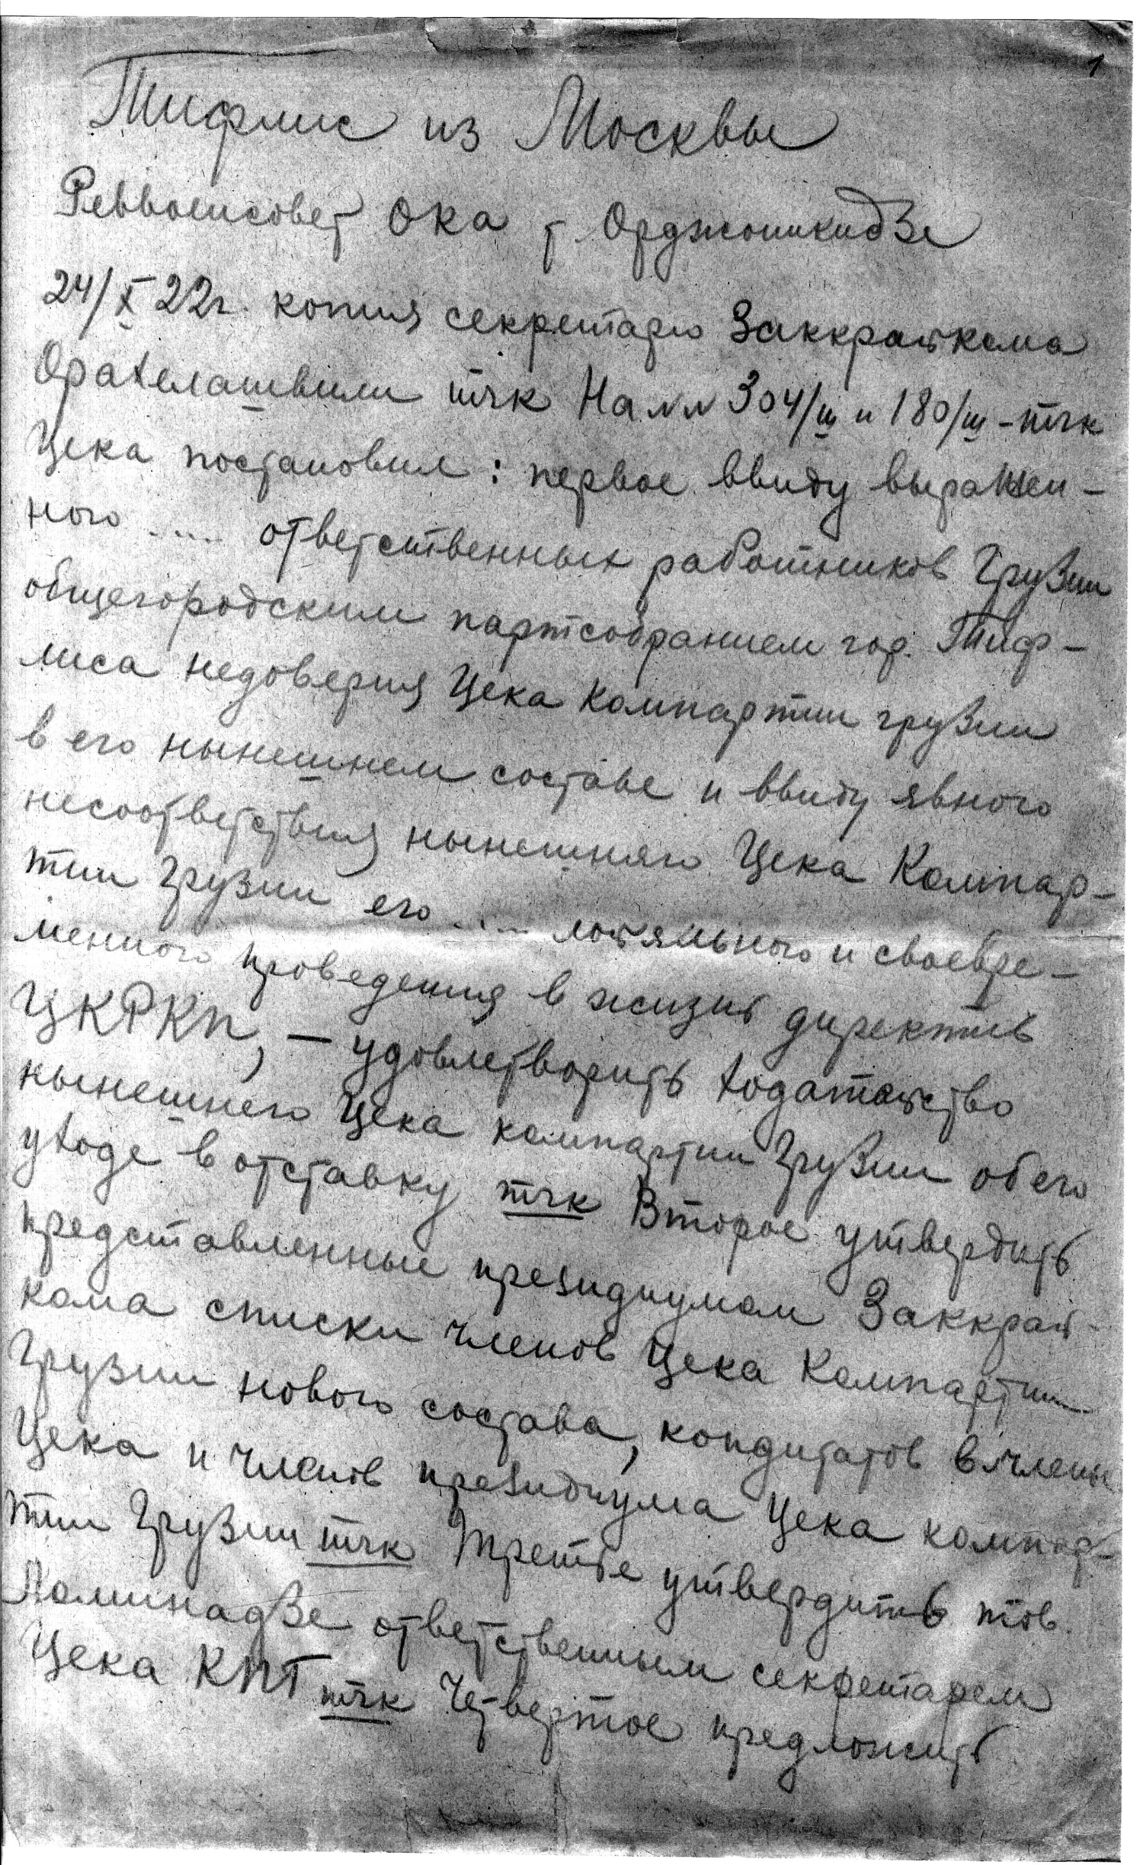 1
Тифлис из Москвы
Реввоенсовет Ока т Орджоникидзе
24/X 22г. копия секретарю Заккрайкома
Орахелашвили тчк На NN 304/ш и 180/ш – тчк
Цека постановил: первое ввиду выражен-
ного .... ответственных работников Грузии
общегородским партсобранием гор. Тиф-
лиса недоверия Цека Компартии грузии
в его нынешнем составе и ввиду явного
несоответствия нынешняго Цека Компар-
тии Грузии его .... лояльного и своевре-
менного проведения в жизнь директив
ЦКРКП, – удовлетворить ходатайство
нынешнего Цека компартии Грузии об его
уходе в отставку тчк Второе утвердить
представленные президиумом Заккрай-
кома списки членов Цека Компартии
Грузии нового состава, кондитатов в члены
Цека и членов президиума Цека компар-
тии Грузии тчк Третье утвердить тов.
Ломинадзе ответственным секретарем
Цека КПГ тчк Четвертое предложить